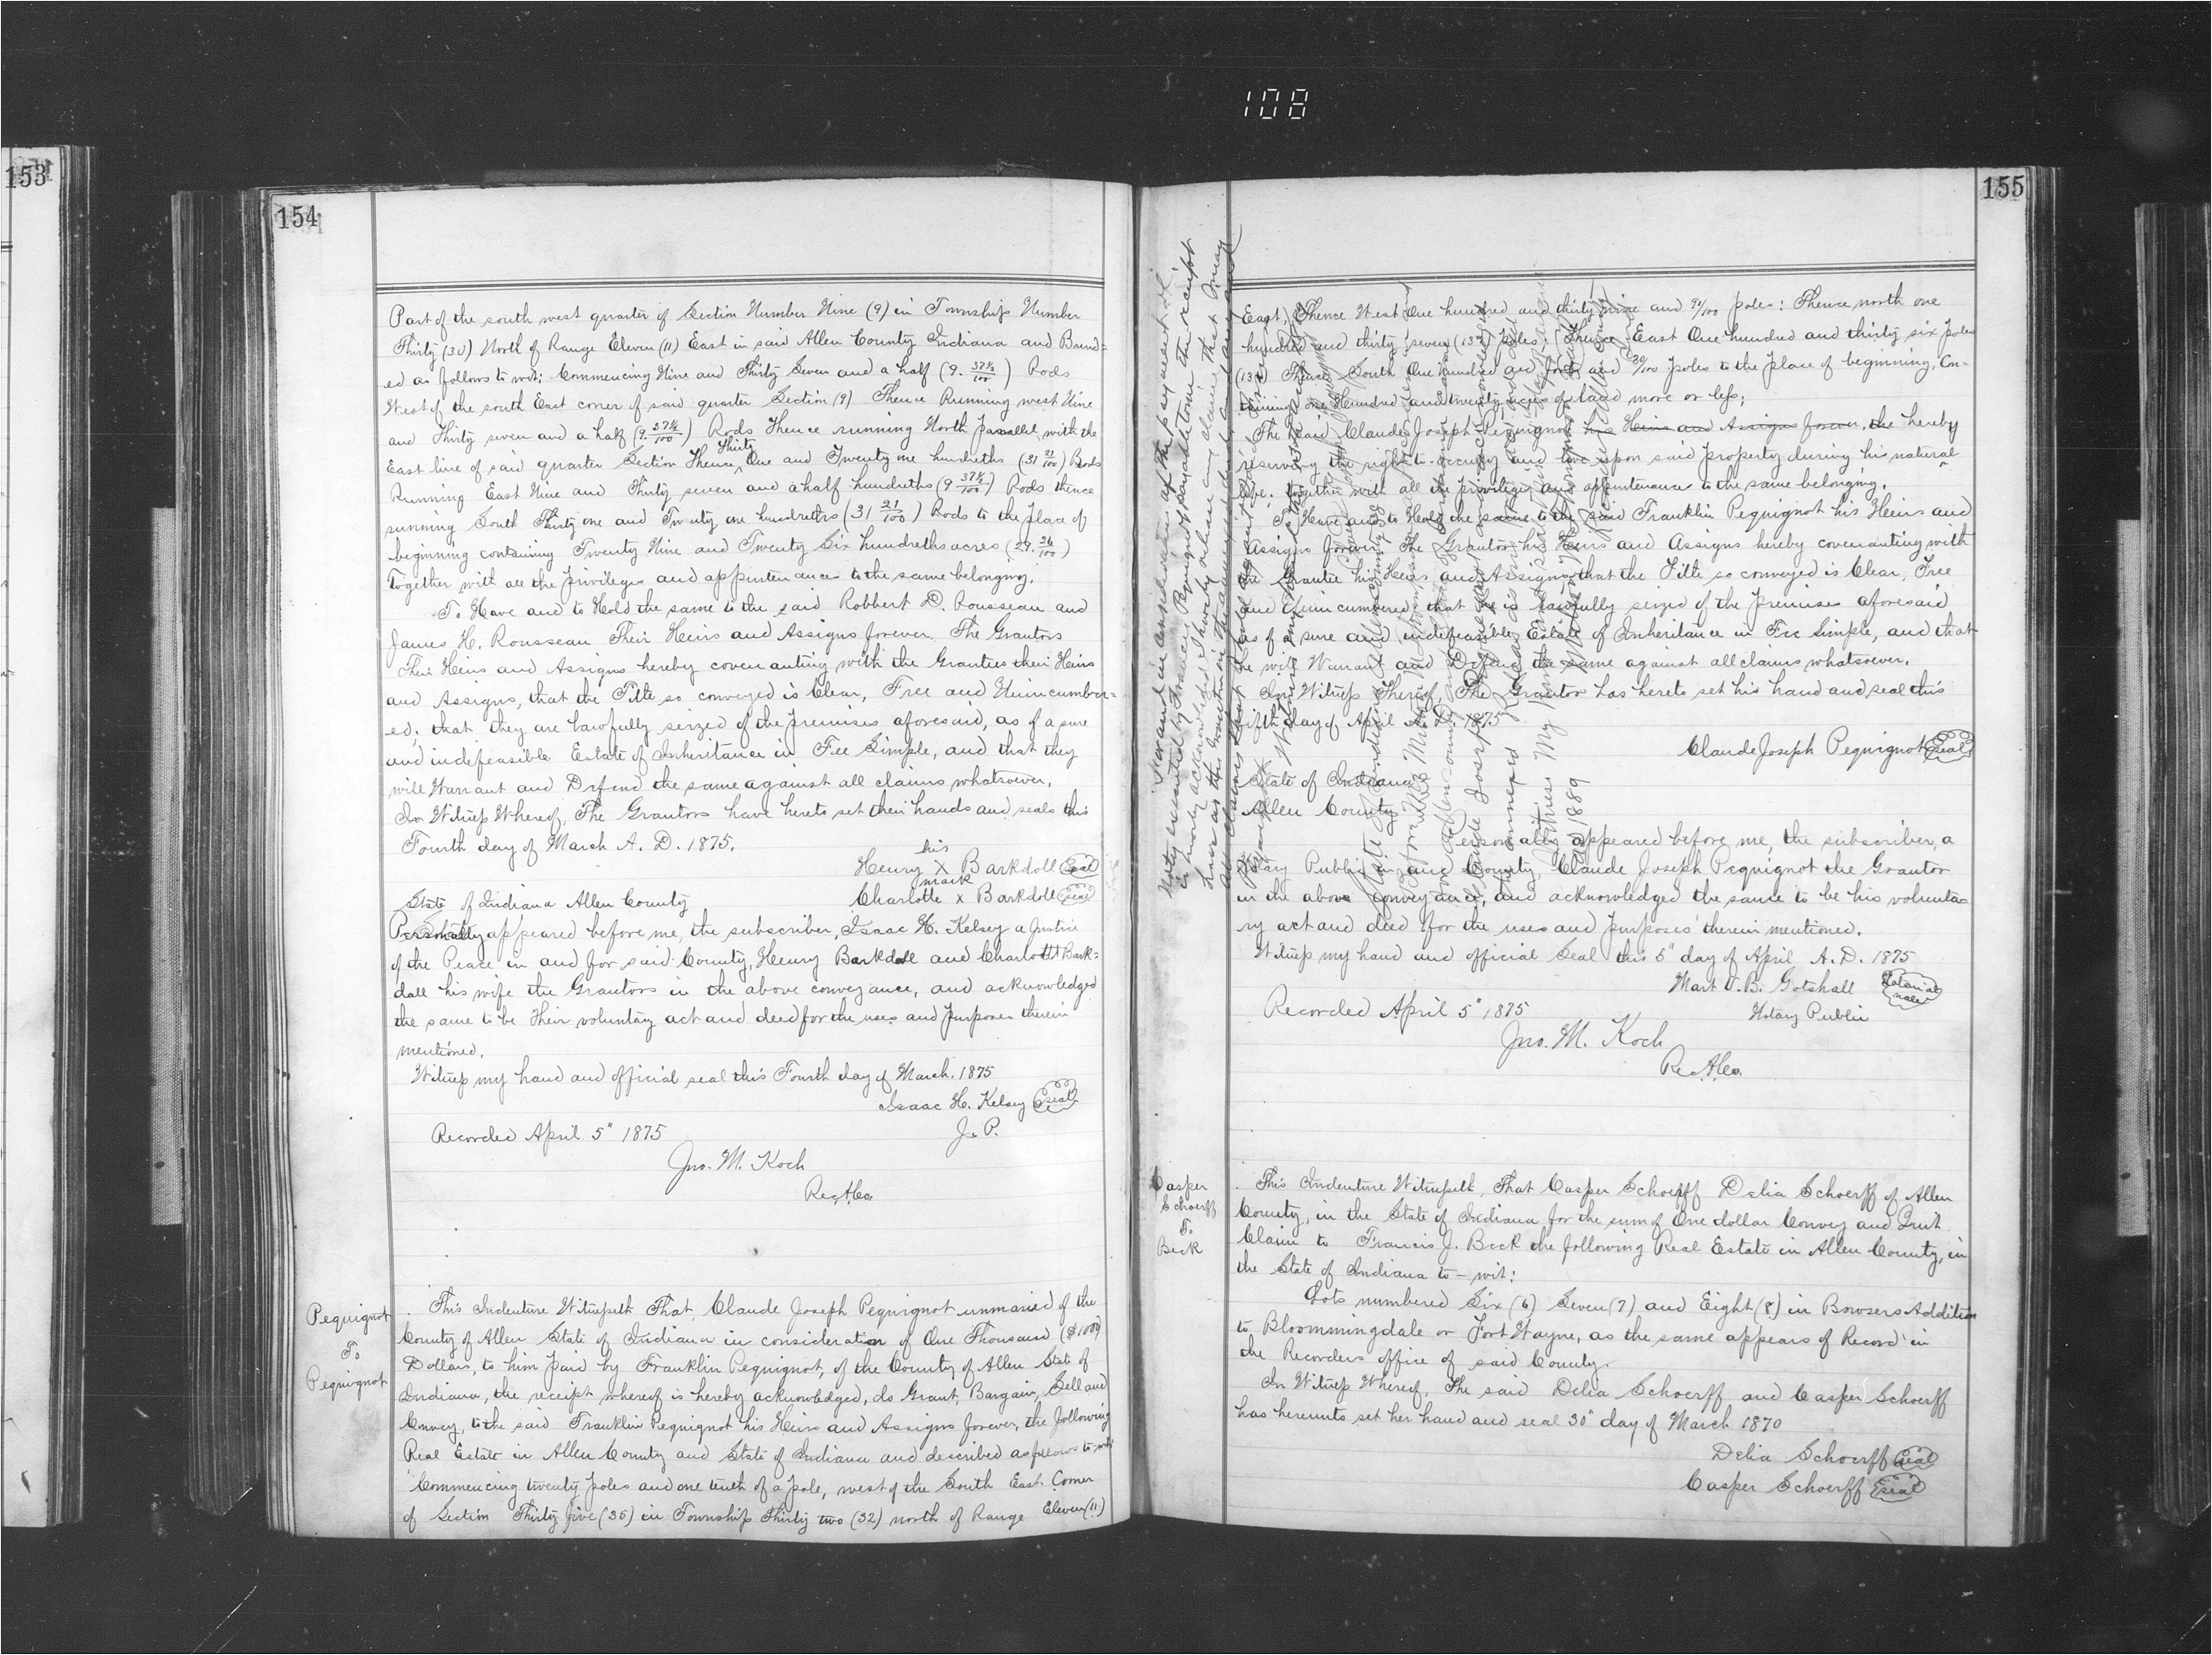 108
153
154
Part of the south west quarter of Section Number Nine (9) in Township Number
Thirty (30) North of Range Eleven (11) East in said Allen County Indiana and Bound=
ed as follows to wit; Commencing Nine and Thirty Seven and a half (9. 37½/100) Rods
West of the south East corner of said quarter Section (9) Thence Running west Nine
and Thirty seven and a half (9. 37½/100) Rods Thence running North parallel with the
East line of said quarter Section Thence Thirty One and Twenty one hundreths (31 21/100) Rods
Running East Nine and Thirty seven and a half hundreths (9 37½/100) Rods thence
running South Thirty one and Twenty one hundreths (31 21/100) Rods to the place of
beginning containing Twenty Nine and Twenty Six hundreths acres (29. 26/100)
Together with all the privileges and appurtenances to the same belonging.
To Have and to Hold the same to the said Robbert D. Rousseau and
James H. Rousseau Their Heirs and Assigns forever. The Grantors
Their Heirs and Assigns hereby covenanting with the Grantees their Heirs
and Assigns, that the Title so conveyed is Clear, Free and Unincumber=
ed; that they are lawfully seized of the premises aforesaid, as of a sure
and indefeasible Estate of Inheritance in Fee Simple, and that they
will Warrant and Defend the same against all claims whatsoever.
In Witness Whereof, The Grantors have hereto set their hands and seals this
Fourth day of March A. D. 1875.
his
Henry X Barkdoll Seal
mark
Charlotte x Barkdoll Seal
State of Indiana Allen County
Personally appeared before me, the subscriber, Isaac H. Kelsey a Justice
of the Peace in and for said County, Henry Barkdoll and Charlott Bark=
doll his wife the Grantors in the above conveyance, and acknowledged
the same to be their voluntary act and deed for the uses and purposes therein
mentioned.
Witness my hand and official seal this Fourth day of March. 1875
Isaac H. Kelsey Seal
J. P.
Recorded April 5" 1875
Jno. M. Koch
R.A.Co.
Pequignot
To
Pequignot
This Indenture Witnesseth That, Claude Joseph Pequignot unmaried of the
County of Allen State of Indiana in consideration of One Thousand ($1000)
Dollars, to him paid by Franklin Pequignot, of the County of Allen State of
Indiana, the receipt whereof is hereby acknowledged, do Grant, Bargain, Sell and
Convey, to the said Franklin Pequignot his Heirs and Assigns forever, the following
Real Estate in Allen County and State of Indiana and described as follows to-wit
Commencing twenty poles and one tenth of a pole, west of the South East Corner
of Section Thirty five (35) in Township Thirty two (32) north of Range Eleven (11)
155
East, Thence West One hundred and thirty nine and 90/100 poles: Thence north one
hundred and thirty seven (137) poles; Thence East One hundred and thirty six poles
(136) Thence South One hundred and forty and 30/100 poles to the place of beginning, Con-
taining one Hundred and twenty acres of land more or less;
The said Claude Joseph Pequignot his Heirs and Assigns forever, the hereby
reserving the right to occupy and live upon said property during his natural
life. together with all the privileges and appurtenances to the same belonging.
To Have and to Hold the same to the said Franklin Pequignot his Heirs and
Assigns forever. The Grantor his Heirs and Assigns hereby covenanting with
the Grantee his Heirs and Assigns that the Title so conveyed is Clear, Free
and Unincumbered; that he is lawfully seized of the premises aforesaid
as of a sure and indefeasible Estate of Inheritance in Fee Simple, and that
he will Warrant and Defend the same against all claims whatsoever.
In Witness Thereof, The Grantor has hereto set his hand and seal this
fifth day of April A. D. 1875
Claude Joseph Pequignot Seal
State of Indiana
Allen County
Personally appeared before me, the subscriber, a
Notary Public in and County, Claude Joseph Pequignot the Grantor
in the above conveyance, and acknowledged the same to be his volunta=
ry act and deed for the uses and purposes therein mentioned.
Witness my hand and official Seal this 5" day of April A.D. 1875
Mart V.B. Gotshall Notarial Seal
Notary Public
Recorded April 5" 1875
Jno. M. Koch
R.A.Co.
Casper
Schoerff
To
Beck
This Indenture Witnesseth, That Casper Schoerff Delia Schoerff of Allen
County, in the State of Indiana for the sum of One dollar Convey and Quit
Claim to Francis J. Beck the following Real Estate in Allen County, in
the State of Indiana to-wit:
Lots numbered Six (6) Seven (7) and Eight (8) in Bowsers Addition
to Bloommingdale or Fort Wayne, as the same appears of Record in
the Recorders office of said County.
In Witness Whereof, The said Delia Schoerff and Casper Schoerff
has hereunto set her hand and seal 30" day of March 1870
Delia Schoerff Seal
Casper Schoerff Seal